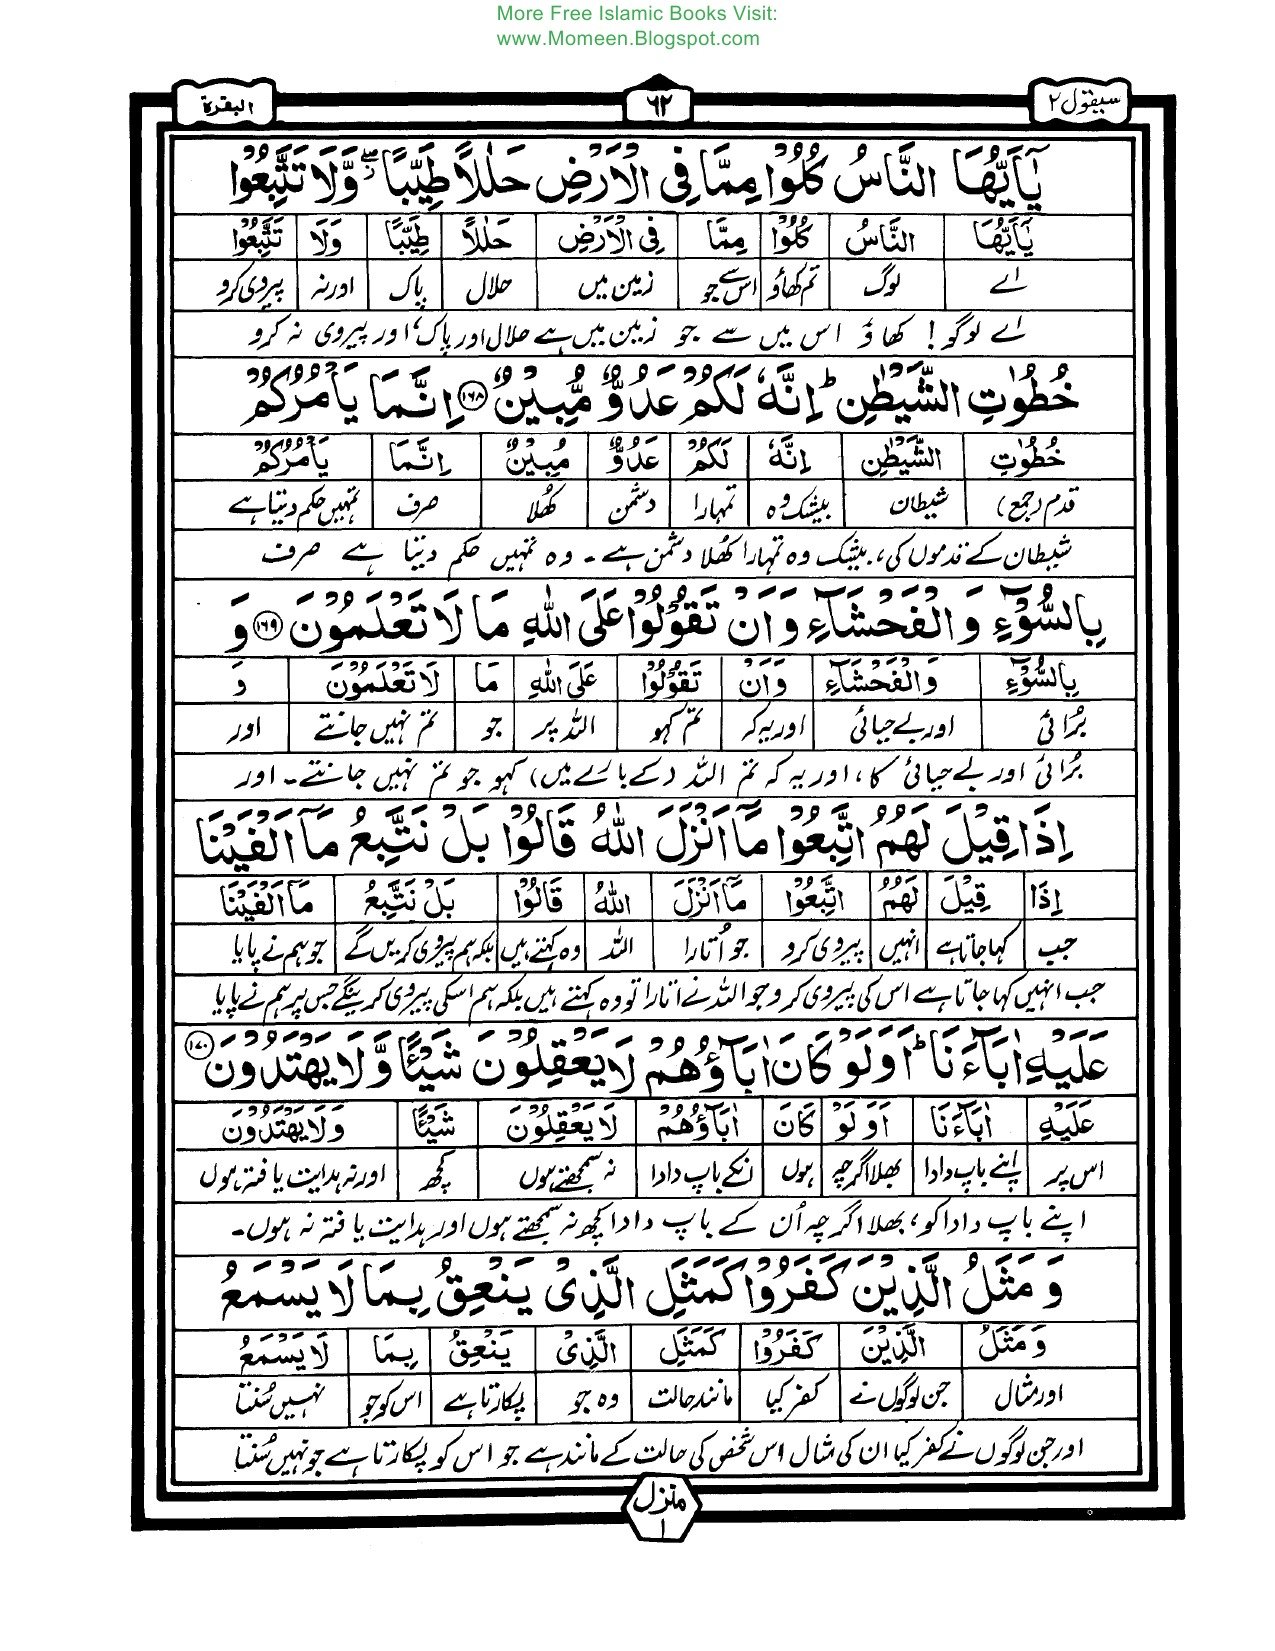 More Free Islamic Books Visit:
www.Momeen.Blogspot.com
سيقول ٢ ٦٢ البقرة
يٰۤاَيُّهَا النَّاسُ كُلُوْا مِمَّا فِى الْاَرْضِ حَلٰلًا طَيِّبًا ۖ وَّلَا تَتَّبِعُوْا
يٰۤاَيُّهَا النَّاسُ كُلُوْا مِمَّا فِى الْاَرْضِ حَلٰلًا طَيِّبًا وَلَا تَتَّبِعُوْا
اے لوگ تم کھاؤ اس سے جو زمین میں حلال پاک اور نہ پیروی کرو
اے لوگو! کھاؤ اس میں سے جو زمین میں ہے حلال اور پاک، اور پیروی نہ کرو
خُطُوٰتِ الشَّيْطٰنِ ؕ اِنَّهٗ لَكُمْ عَدُوٌّ مُّبِيْنٌ ۝۱۶۸ اِنَّمَا يَاْمُرُكُمْ
خُطُوٰتِ الشَّيْطٰنِ اِنَّهٗ لَكُمْ عَدُوٌّ مُبِيْنٌ اِنَّمَا يَاْمُرُكُمْ
قدم (جمع) شیطان بیشک وہ تمہارا دشمن کھُلا صرف تمہیں حکم دیتا ہے
شیطان کے قدموں کی، بیشک وہ تمہارا کھُلا دشمن ہے۔ وہ تمہیں حکم دیتا ہے صرف
بِالسُّوْٓءِ وَ الْفَحْشَآءِ وَ اَنْ تَقُوْلُوْا عَلَى اللّٰهِ مَا لَا تَعْلَمُوْنَ ۝۱۶۹ وَ
بِالسُّوْٓءِ وَالْفَحْشَآءِ وَاَنْ تَقُوْلُوْا عَلَى اللّٰهِ مَا لَا تَعْلَمُوْنَ وَ
بُرائی اور بے حیائی اور یہ کہ تم کہو اللہ پر جو تم نہیں جانتے اور
بُرائی اور بے حیائی کا، اور یہ کہ تم اللہ (کے بارے میں) کہو جو تم نہیں جانتے۔ اور
اِذَا قِيْلَ لَهُمُ اتَّبِعُوْا مَاۤ اَنْزَلَ اللّٰهُ قَالُوْا بَلْ نَتَّبِعُ مَاۤ اَلْفَيْنَا
اِذَا قِيْلَ لَهُمُ اتَّبِعُوْا مَاۤ اَنْزَلَ اللّٰهُ قَالُوْا بَلْ نَتَّبِعُ مَاۤ اَلْفَيْنَا
جب کہا جاتا ہے انہیں پیروی کرو جو اُتارا اللہ وہ کہتے ہیں بلکہ ہم پیروی کریں گے جو ہم نے پایا
جب انہیں کہا جاتا ہے اس کی پیروی کرو جو اللہ نے اتارا تو وہ کہتے ہیں بلکہ ہم اسکی پیروی کرینگے جس پر ہم نے پایا
عَلَيْهِ اٰبَآءَنَا ؕ اَوَلَوْ كَانَ اٰبَآؤُهُمْ لَا يَعْقِلُوْنَ شَيْـًٔا وَّ لَا يَهْتَدُوْنَ ۝۱۷۰
عَلَيْهِ اٰبَآءَنَا اَوَلَوْ كَانَ اٰبَآؤُهُمْ لَا يَعْقِلُوْنَ شَيْـًٔا وَلَا يَهْتَدُوْنَ
اس پر اپنے باپ دادا بھلا اگرچہ ہوں انکے باپ دادا نہ سمجھتے ہوں کچھ اور نہ ہدایت یافتہ ہوں
اپنے باپ دادا کو، بھلا اگرچہ اُن کے باپ دادا کچھ نہ سمجھتے ہوں اور ہدایت یافتہ نہ ہوں۔
وَ مَثَلُ الَّذِيْنَ كَفَرُوْا كَمَثَلِ الَّذِىْ يَنْعِقُ بِمَا لَا يَسْمَعُ
وَ مَثَلُ الَّذِيْنَ كَفَرُوْا كَمَثَلِ الَّذِىْ يَنْعِقُ بِمَا لَا يَسْمَعُ
اور مثال جن لوگوں نے کفر کیا مانند حالت وہ جو پکارتا ہے اس کو جو نہیں سُنتا
اور جن لوگوں نے کفر کیا ان کی مثال اس شخص کی حالت کے مانند ہے جو اس کو پکارتا ہے جو نہیں سُنتا
منزل ١